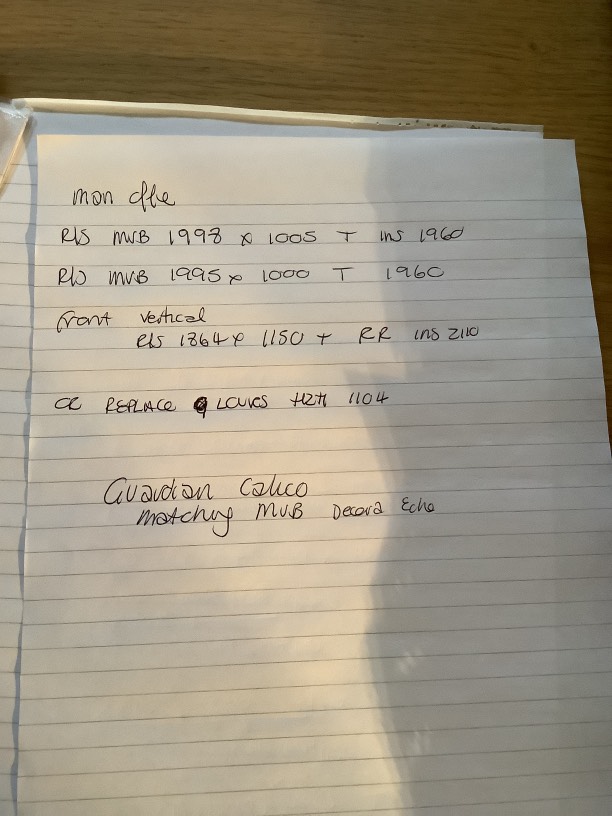 mon
R/S MVB 1998 x 1005 T ins 1960
R/S MVB 1995 x 1000 T 1960
front vertical
R/S 1864 x 1150 + RR ins 2110
OR REPLACE 9 LOUVRES 1104
Guardian Calico
matching MVB Decora Echo